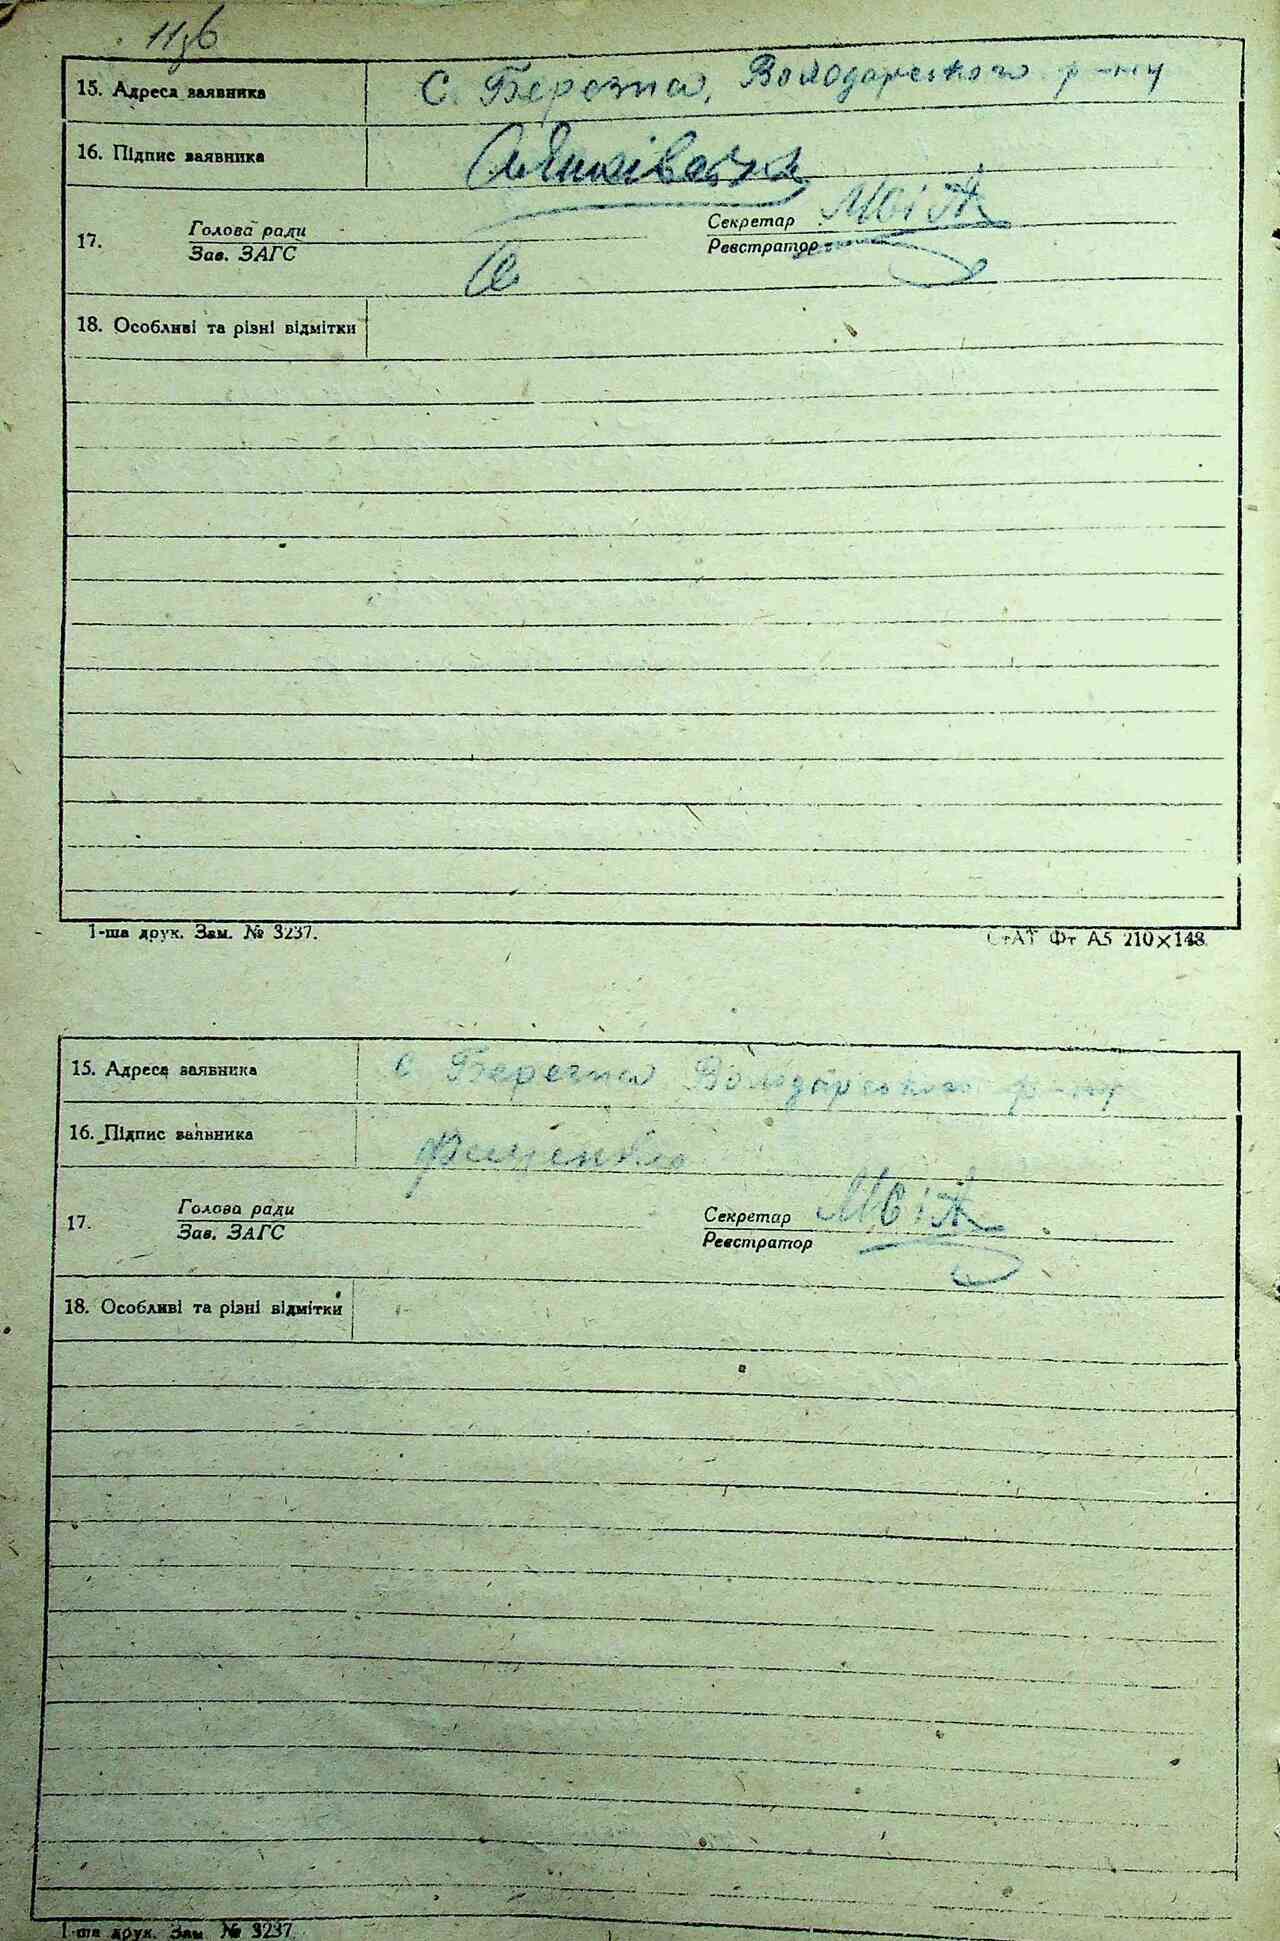 11зв
15. Адреса заявника С. Березна, Володарського р-ну
16. Підпис заявника
17. Голова ради Секретар
Зав. ЗАГС Реєстратор
18. Особливі та різні відмітки
1-ша друк. Зам. № 3237. СтАТ Фт А5 210×148
15. Адреса заявника с Березна Володарського р-ну
16. Підпис заявника Фещенко
17. Голова ради Секретар
Зав. ЗАГС Реєстратор
18. Особливі та різні відмітки
1-ша друк. Зам. № 3237.